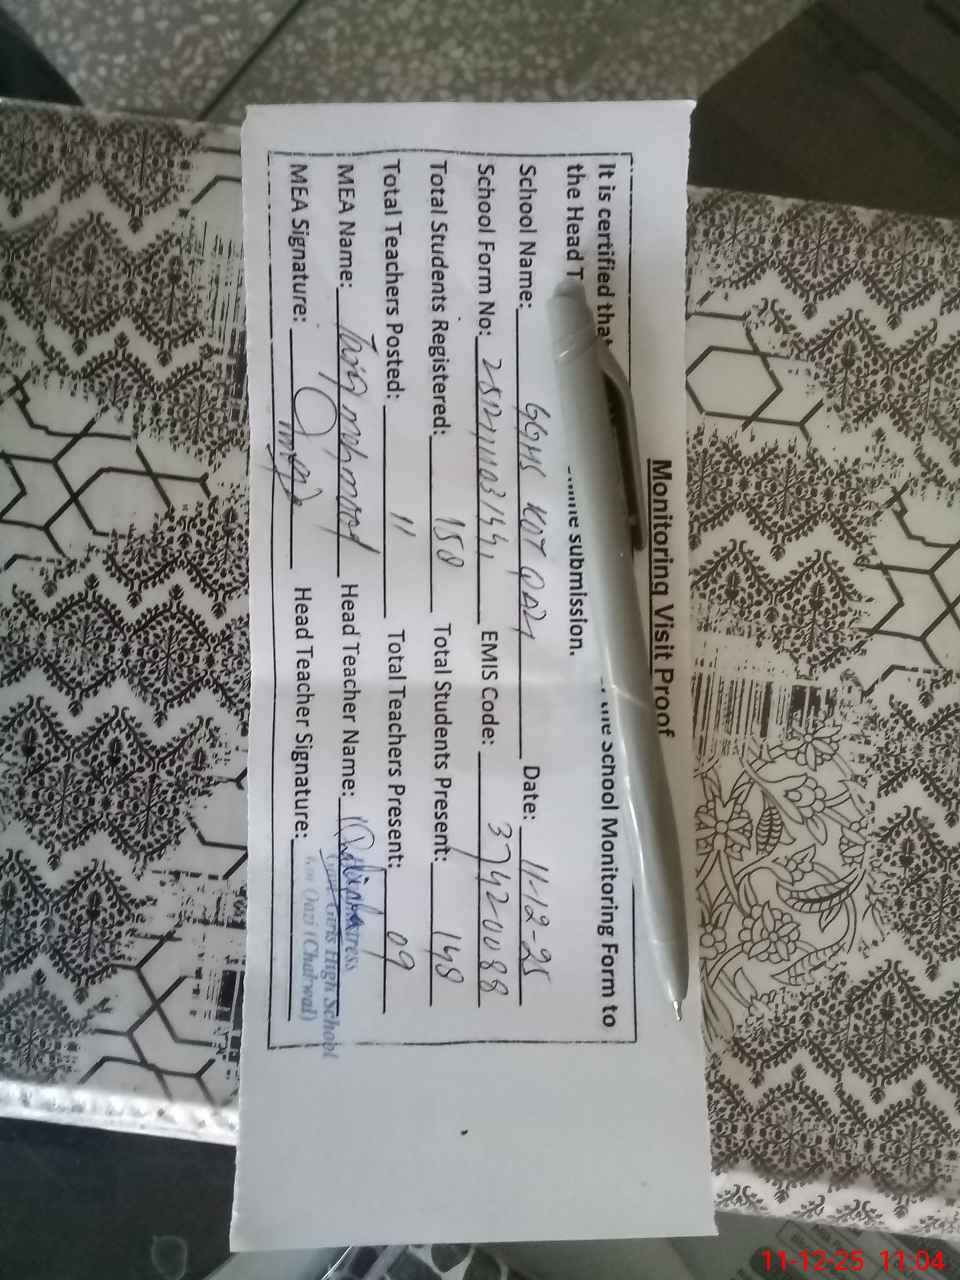 Monitoring Visit Proof
It is certified that the School Monitoring Form to
the Head submission.
School Name: GGHS KOT QAZI Date: 11-12-25
School Form No: EMIS Code: 37420088
Total Students Registered: 158 Total Students Present: 148
Total Teachers Posted: 11 Total Teachers Present: 09
MEA Name: Tariq mehmood Head Teacher Name:
MEA Signature: Head Teacher Signature:
Girls High School
Kot Qazi (Chakwal)
11-12-25 11:04